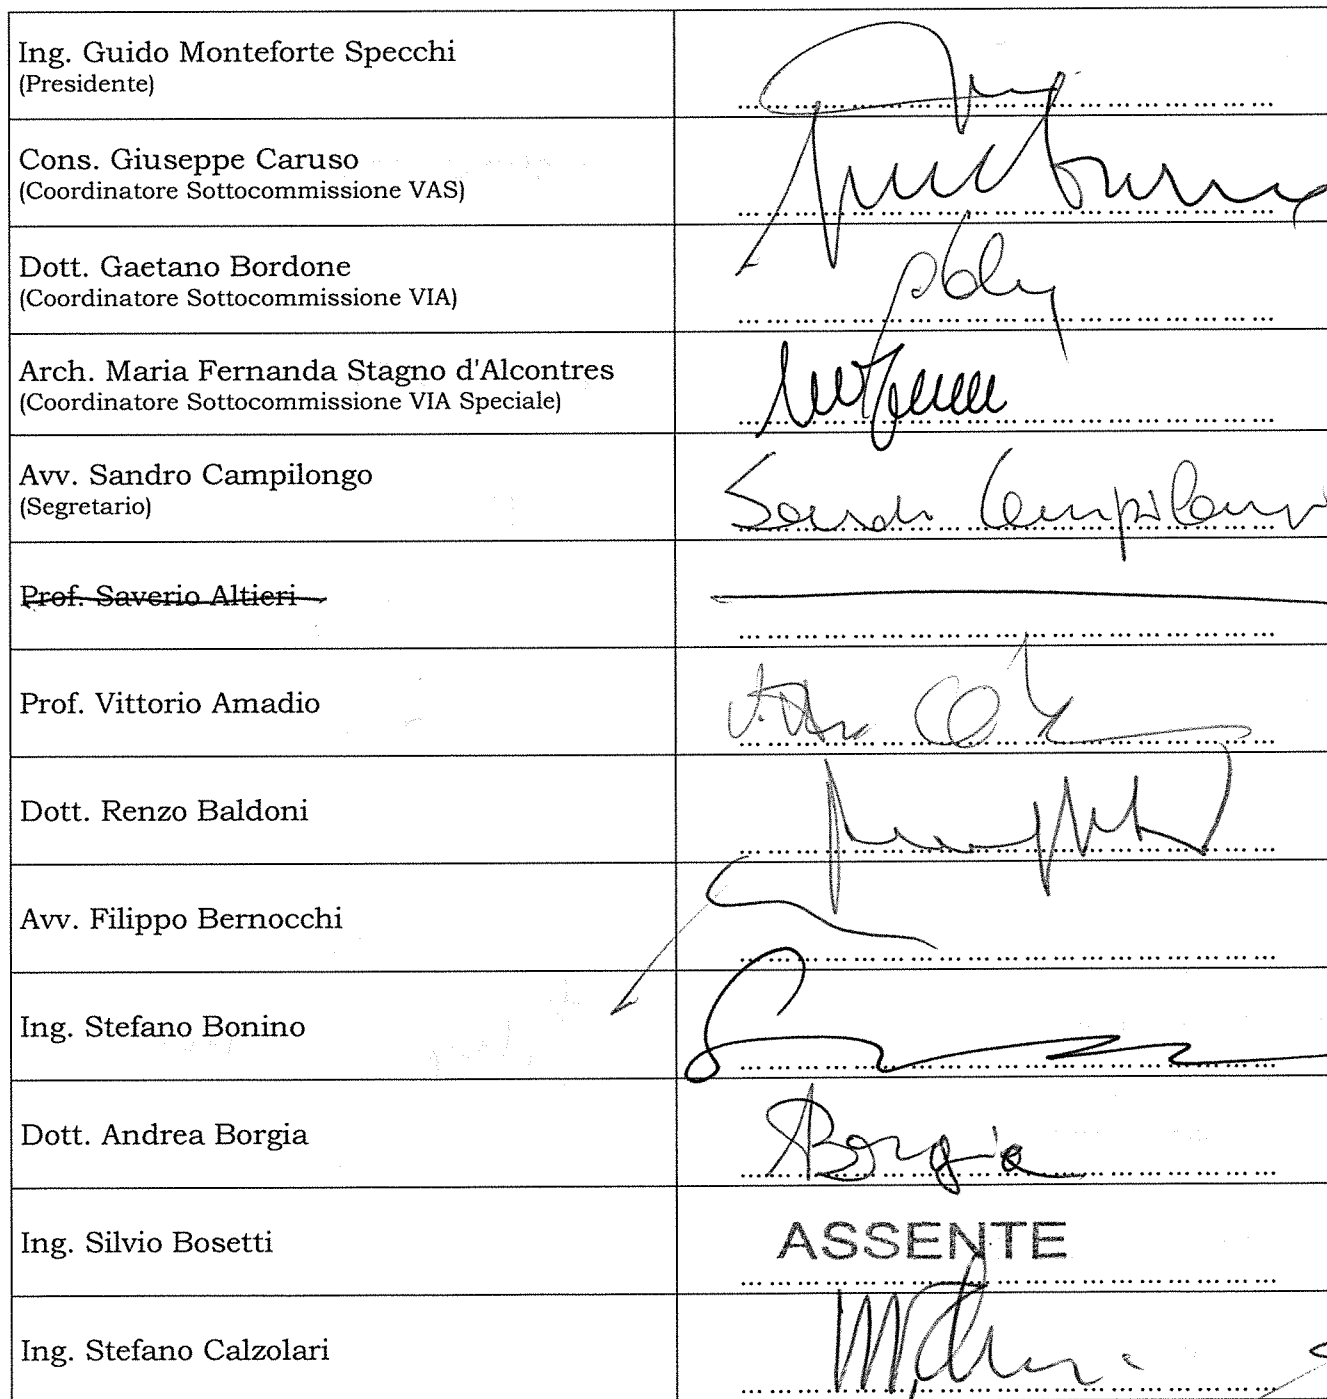 Ing. Guido Monteforte Specchi
(Presidente)
Cons. Giuseppe Caruso
(Coordinatore Sottocommissione VAS)
Dott. Gaetano Bordone
(Coordinatore Sottocommissione VIA)
Arch. Maria Fernanda Stagno d'Alcontres
(Coordinatore Sottocommissione VIA Speciale)
Avv. Sandro Campilongo
(Segretario)
Sandro Campilongo
Prof. Saverio Altieri
Prof. Vittorio Amadio
Dott. Renzo Baldoni
Avv. Filippo Bernocchi
Ing. Stefano Bonino
Dott. Andrea Borgia
ABorgia
Ing. Silvio Bosetti
ASSENTE
Ing. Stefano Calzolari